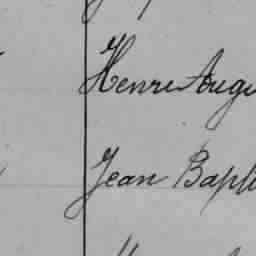 Henri Augu
Jean Bapti